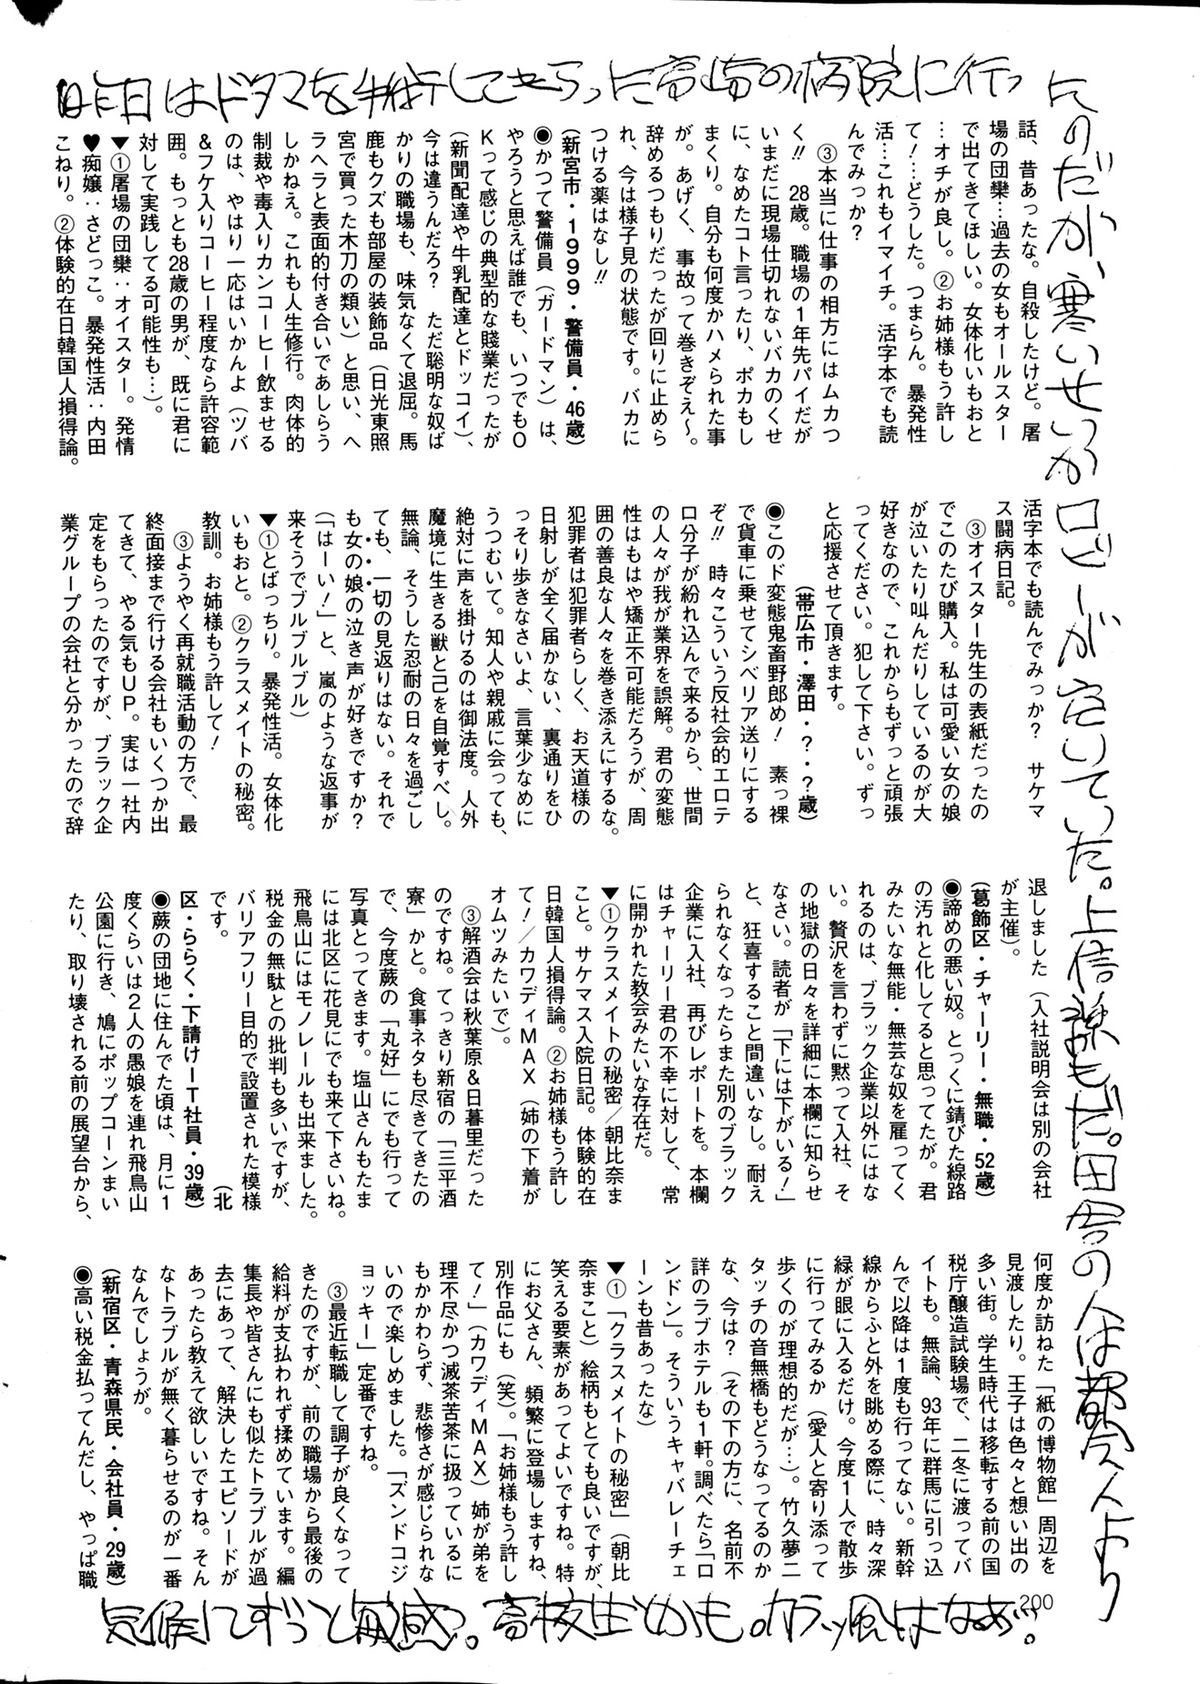 昨日はドタマを手術してもらった高崎の病院に行っ
たのだが、寒いせいかロビーが空いていた。上信線もだ。田舎の人は都会人より
気候にずっと敏感っ。高校生とかも。カラッ風はなあ…。
話、昔あったな。自殺したけど。屠
場の団欒…過去の女もオールスター
で出てきてほしい。女体化いもおと
…オチが良し。②お姉様もう許し
て！…どうした。つまらん。暴発性
活…これもイマイチ。活字本でも読
んでみっか？
③本当に仕事の相方にはムカつ
く!!　28歳。職場の1年先パイだが
いまだに現場仕切れないバカのくせ
に、なめたコト言ったり、ポカもし
まくり。自分も何度かハメられた事
が。あげく、事故って巻きぞえ〜。
辞めるつもりだったが回りに止めら
れ、今は様子見の状態です。バカに
つける薬はなし!!
（新宮市・1999・警備員・46歳）
◉かつて警備員（ガードマン）は、
やろうと思えば誰でも、いつでもO
Kって感じの典型的な賤業だったが
（新聞配達や牛乳配達とドッコイ）、
今は違うんだろ？　ただ聡明な奴ば
かりの職場も、味気なくて退屈。馬
鹿もクズも部屋の装飾品（日光東照
宮で買った木刀の類い）と思い、へ
ラヘラと表面的付き合いであしらう
しかねえ。これも人生修行。肉体的
制裁や毒入りカンコーヒー飲ませる
のは、やはり一応はいかんよ（ツバ
&フケ入りコーヒー程度なら許容範
囲。もっとも28歳の男が、既に君に
対して実践してる可能性も…）。
▼①屠場の団欒‥オイスター。発情
♥痴嬢‥さどっこ。暴発性活‥内田
こねり。②体験的在日韓国人損得論。
活字本でも読んでみっか？　サケマ
ス闘病日記。
③オイスター先生の表紙だったの
でこのたび購入。私は可愛い女の娘
が泣いたり叫んだりしているのが大
好きなので、これからもずっと頑張
ってください。犯して下さい。ずっ
と応援させて頂きます。
（帯広市・澤田・？・？歳）
◉このド変態鬼畜野郎め！　素っ裸
で貨車に乗せてシベリア送りにする
ぞ!!　時々こういう反社会的エロテ
ロ分子が紛れ込んで来るから、世間
の人々が我が業界を誤解。君の変態
性はもはや矯正不可能だろうが、周
囲の善良な人々を巻き添えにするな。
犯罪者は犯罪者らしく、お天道様の
日射しが全く届かない、裏通りをひ
っそり歩きなさいよ、言葉少なめに
うつむいて。知人や親戚に会っても、
絶対に声を掛けるのは御法度。人外
魔境に生きる獣と己を自覚すべし。
無論、そうした忍耐の日々を過ごし
ても、一切の見返りはない。それで
も女の娘の泣き声が好きですか？
（「はーい！」と、嵐のような返事が
来そうでブルブルブル）
▼①とばっちり。暴発性活。女体化
いもおと。②クラスメイトの秘密。
教訓。お姉様もう許して！
③ようやく再就職活動の方で、最
終面接まで行ける会社もいくつか出
てきて、やる気もUP。実は一社内
定をもらったのですが、ブラック企
業グループの会社と分かったので辞
退しました（入社説明会は別の会社
が主催）。
（葛飾区・チャーリー・無職・52歳）
◉諦めの悪い奴。とっくに錆びた線路
の汚れと化してると思ってたが。君
みたいな無能・無芸な奴を雇ってく
れるのは、ブラック企業以外にはな
い。贅沢を言わずに黙って入社、そ
の地獄の日々を詳細に本欄に知らせ
なさい。読者が「下には下がいる！」
と、狂喜すること間違いなし。耐え
られなくなったらまた別のブラック
企業に入社、再びレポートを。本欄
はチャーリー君の不幸に対して、常
に開かれた教会みたいな存在だ。
▼①クラスメイトの秘密／朝比奈ま
こと。サケマス入院日記。体験的在
日韓国人損得論。②お姉様もう許し
て！／カワディMAX（姉の下着が
オムツみたいで）。
③解酒会は秋葉原&日暮里だった
のですね。てっきり新宿の「三平酒
寮」かと。食事ネタも尽きてきたの
で、今度蕨の「丸好」にでも行って
写真とってきます。塩山さんもたま
には北区に花見にでも来て下さいね。
飛鳥山にはモノレールも出来ました。
税金の無駄との批判も多いですが、
バリアフリー目的で設置された模様
です。
（北
区・ららく・下請けIT社員・39歳）
◉蕨の団地に住んでた頃は、月に1
度くらいは2人の愚娘を連れ飛鳥山
公園に行き、鳩にポップコーンまい
たり、取り壊される前の展望台から、
何度か訪ねた「紙の博物館」周辺を
見渡したり。王子は色々と想い出の
多い街。学生時代は移転する前の国
税庁醸造試験場で、二冬に渡ってバ
イトも。無論、93年に群馬に引っ込
んで以降は1度も行ってない。新幹
線からふと外を眺める際に、時々深
緑が眼に入るだけ。今度1人で散歩
に行ってみるか（愛人と寄り添って
歩くのが理想的だが…）。竹久夢二
タッチの音無橋もどうなってるのか
な、今は？（その下の方に、名前不
詳のラブホテルも1軒。調べたら「ロ
ンドン」。そういうキャバレーチェ
ーンも昔あったな）
▼①「クラスメイトの秘密」（朝比
奈まこと）絵柄もとても良いですが、
笑える要素があってよいですね。特
にお父さん、頻繁に登場しますね、
別作品にも（笑）。「お姉様もう許し
て！」（カワディMAX）姉が弟を
理不尽かつ滅茶苦茶に扱っているに
もかかわらず、悲惨さが感じられな
いので楽しめました。「ズンドコジ
ョッキー」定番ですね。
③最近転職して調子が良くなって
きたのですが、前の職場から最後の
給料が支払われず揉めています。編
集長や皆さんにも似たトラブルが過
去にあって、解決したエピソードが
あったら教えて欲しいですね。そん
なトラブルが無く暮らせるのが一番
なんでしょうが。
（新宿区・青森県民・会社員・29歳）
◉高い税金払ってんだし、やっぱ職
200